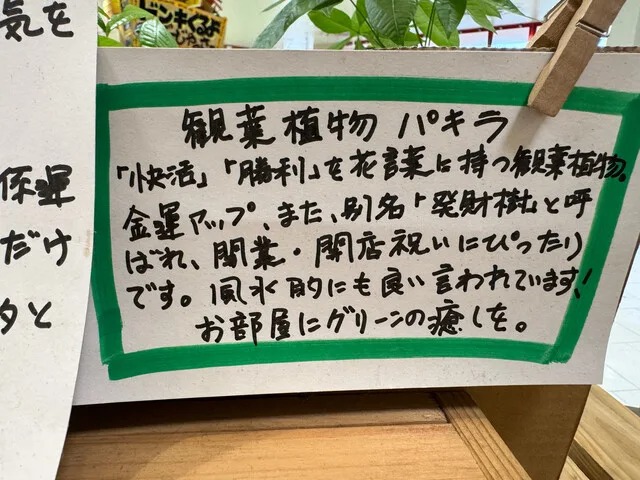 気を
保運
だけ
タと
観葉植物 パキラ
「快活」「勝利」を花言葉に持つ観葉植物。
金運アップ、また、別名「発財樹」と呼
ばれ、開業・開店祝いにぴったり
です。風水的にも良い言われています!
お部屋にグリーンの癒しを。